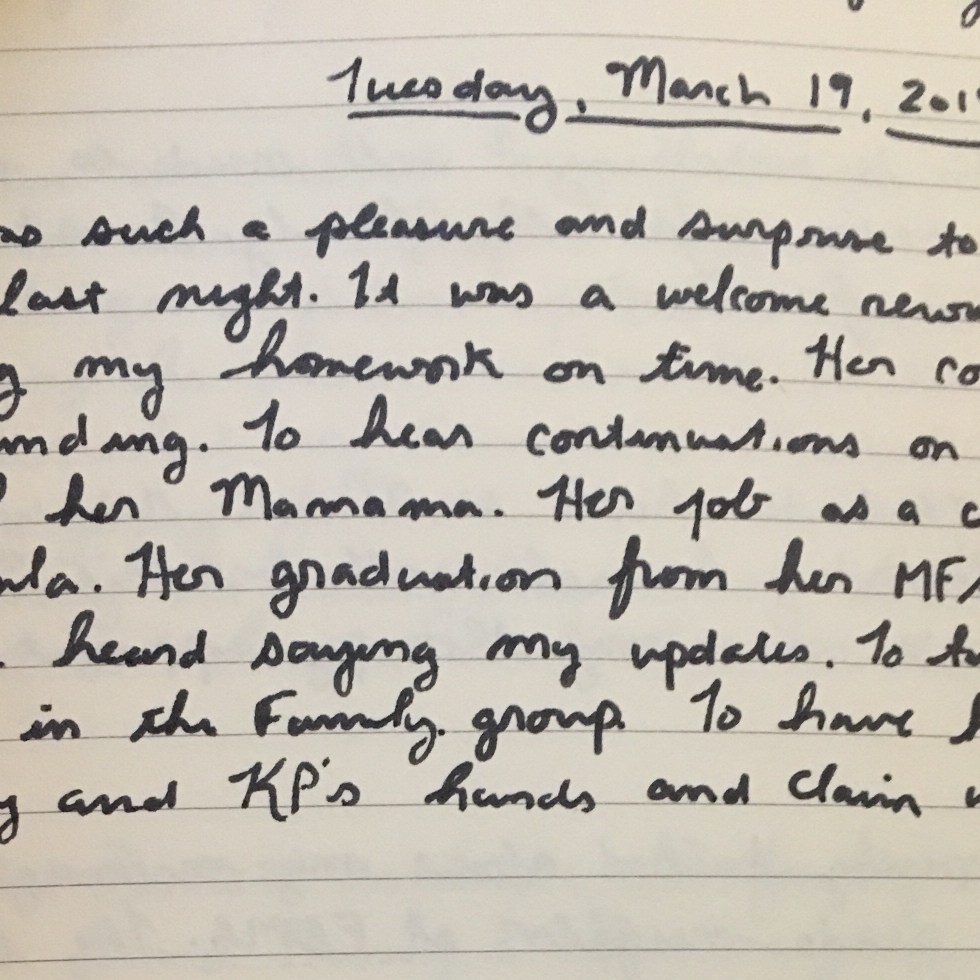 Tuesday, March 19, 201
as such a pleasure and surprise to
last night. It was a welcome
my homework on time. Her co
nding. To hear continuations on
her Mamama. Her job as a c
ula. Her graduation from her MFA
heard saying my updates. To
in the Family group. To have
and KP's hands and claim